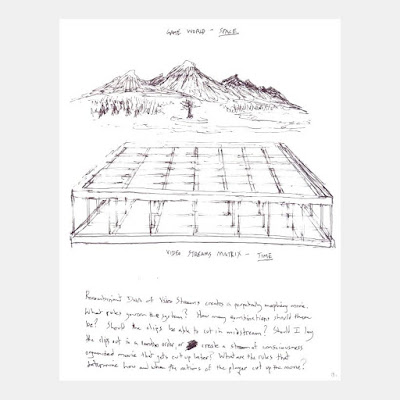 GAME WORLD - SPACE
VIDEO STREAMS MATRIX - TIME
Recombining Dusk of Video Streams creates a perpetually morphing movie.
What rules govern the system? How many combinations should there
be? Should the clips be able to cut in midstream? Should I lay
the clips out in a random order, or create a stream of consciousness
organized movie that gets cut up later? What are the rules that
determine how and when the actions of the player cut up the movie?